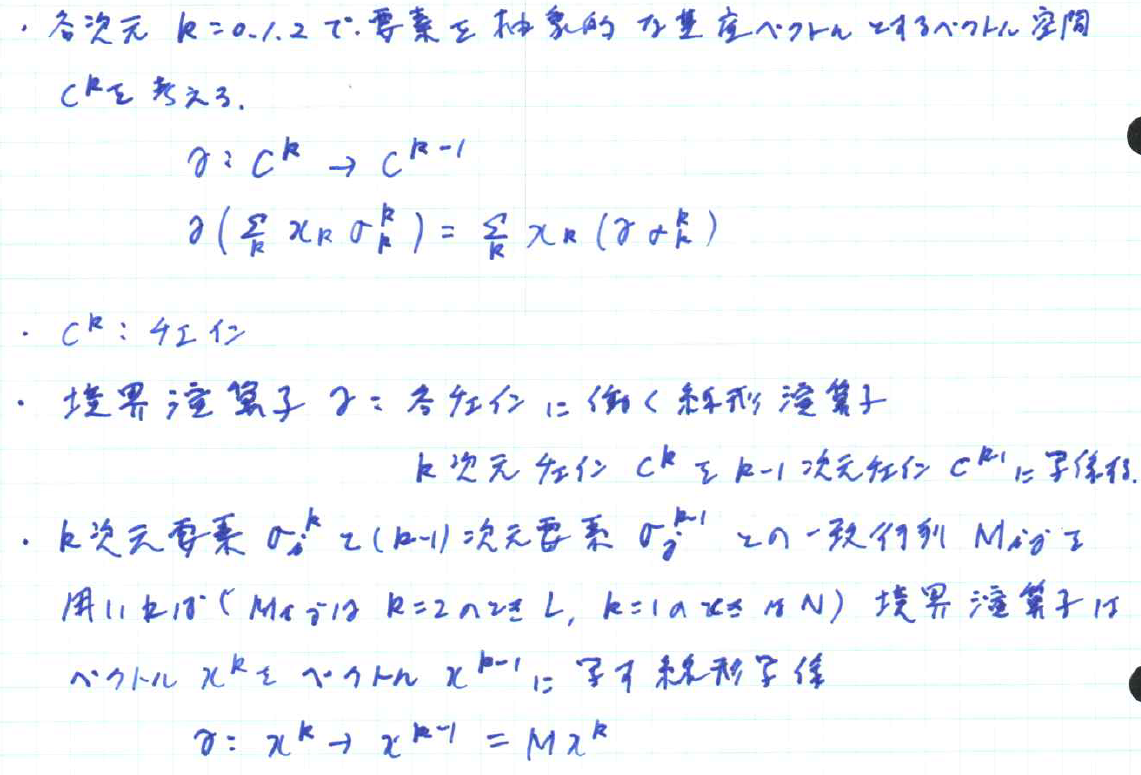 ・各次元 k=0.1.2で.要素を抽象的な基底ベクトルとするベクトル空間
C^kを考える.
∂: C^k → C^{k-1}
∂(Σ_k x_k σ_k^k) = Σ_k x_k (∂σ_k^k)
・C^k: チェイン
・境界演算子 ∂: 各チェインに働く線形演算子
k次元チェイン C^k を k-1次元チェイン C^{k-1}に写像する.
・k次元要素 σ_i^k と(k-1)次元要素 σ_j^{k-1} との一致行列 M_{ij}を
用いれば(M_{ij}は k=2のときL, k=1のときはN) 境界演算子は
ベクトル x^kを ベクトル x^{k-1}に写す線形写像
∂: x^k → x^{k-1} = Mx^k